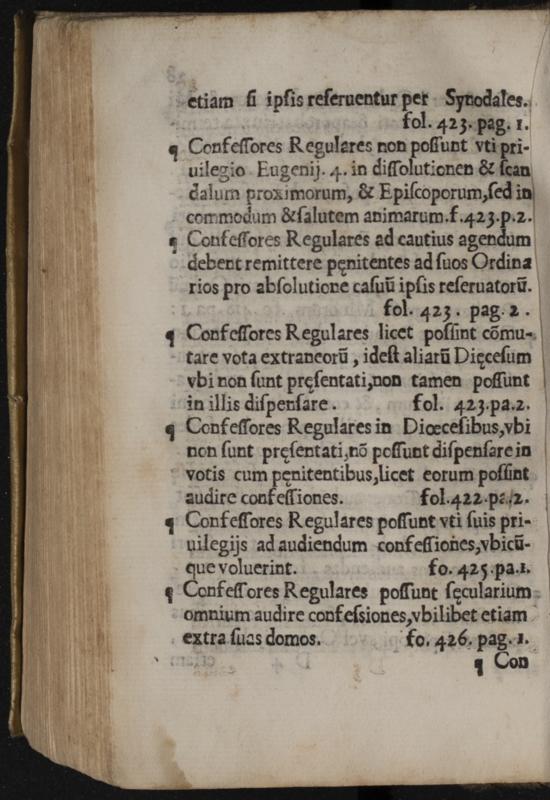 etiam si ipsis reseruentur per Synodales.
fol. 423. pag. 1.
¶ Confessores Regulares non possunt vti pri-
uilegio Eugenij. 4. in dissolutionen & scan
dalum proximorum, & Episcoporum, sed in
commodum & salutem animarum. f. 423. p. 2.
¶ Confessores Regulares ad cautius agendum
debent remittere pęnitentes ad suos Ordina
rios pro absolutione casuũ ipsis reseruatorũ.
fol. 423. pag. 2.
¶ Confessores Regulares licet possint cõmu-
tare vota extraneorũ, idest aliarũ Dięcesum
vbi non sunt pręsentati, non tamen possunt
in illis dispensare. fol. 423. pa. 2.
¶ Confessores Regulares in Diœcesibus, vbi
non sunt pręsentati, nõ possunt dispensare in
votis cum pęnitentibus, licet eorum possint
audire confessiones. fol. 422. pa. 2.
¶ Confessores Regulares possunt vti suis pri-
uilegijs ad audiendum confessiones, vbicũ-
que voluerint. fo. 425. pa. 1.
¶ Confessores Regulares possunt sęcularium
omnium audire confessiones, vbilibet etiam
extra suas domos. fo. 426. pag. 1.
¶ Con